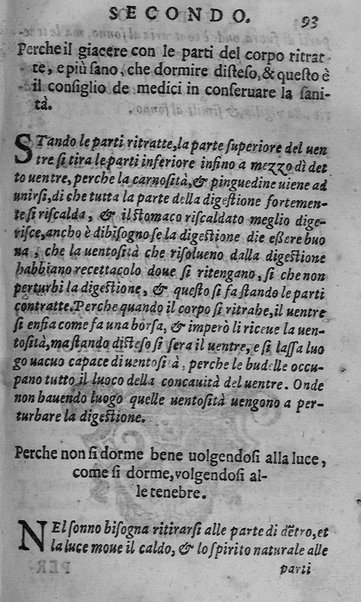 SECONDO. 93
Perche il giacere con le parti del corpo ritrat-
te, e più sano, che dormire disteso, & questo è
il consiglio de medici in conseruare la sani-
tà.
STando le parti ritratte, la parte superiore del uen
tre si tira le parti inferiore infino a mezzo dì det
to uentre, perche la carnosità, & pinguedine uiene ad
unirsi, di che tutta la parte della digestione fortemen-
te si riscalda, & il stomaco riscaldato meglio dige-
risce, ancho è dibisogno se la digestione die essere buo
na, che la uentosità che risolueno dalla digestione
habbiano recettacolo doue si ritengano, si che non
perturbi la digestione, & questo si fa stando le parti
contratte. Perche quando il corpo si ritrahe, il uentre
si ensia come fa una borsa, & imperò li riceue la uen-
tosità, ma stando disteso si sera il uentre, e si lassa luo
go uacuo capace di uentosità, perche le budelle occu-
pano tutto il luoco della concauità del uentre. Onde
non hauendo luogo quelle uentosità uengono a per-
turbare la digestione.
Perche non si dorme bene uolgendosi alla luce,
come si dorme, volgendosi al-
le tenebre.
NEl sonno bisogna ritirarsi alle parte di dẽtro, et
la luce moue il caldo, & lo spirito naturale alle
parti